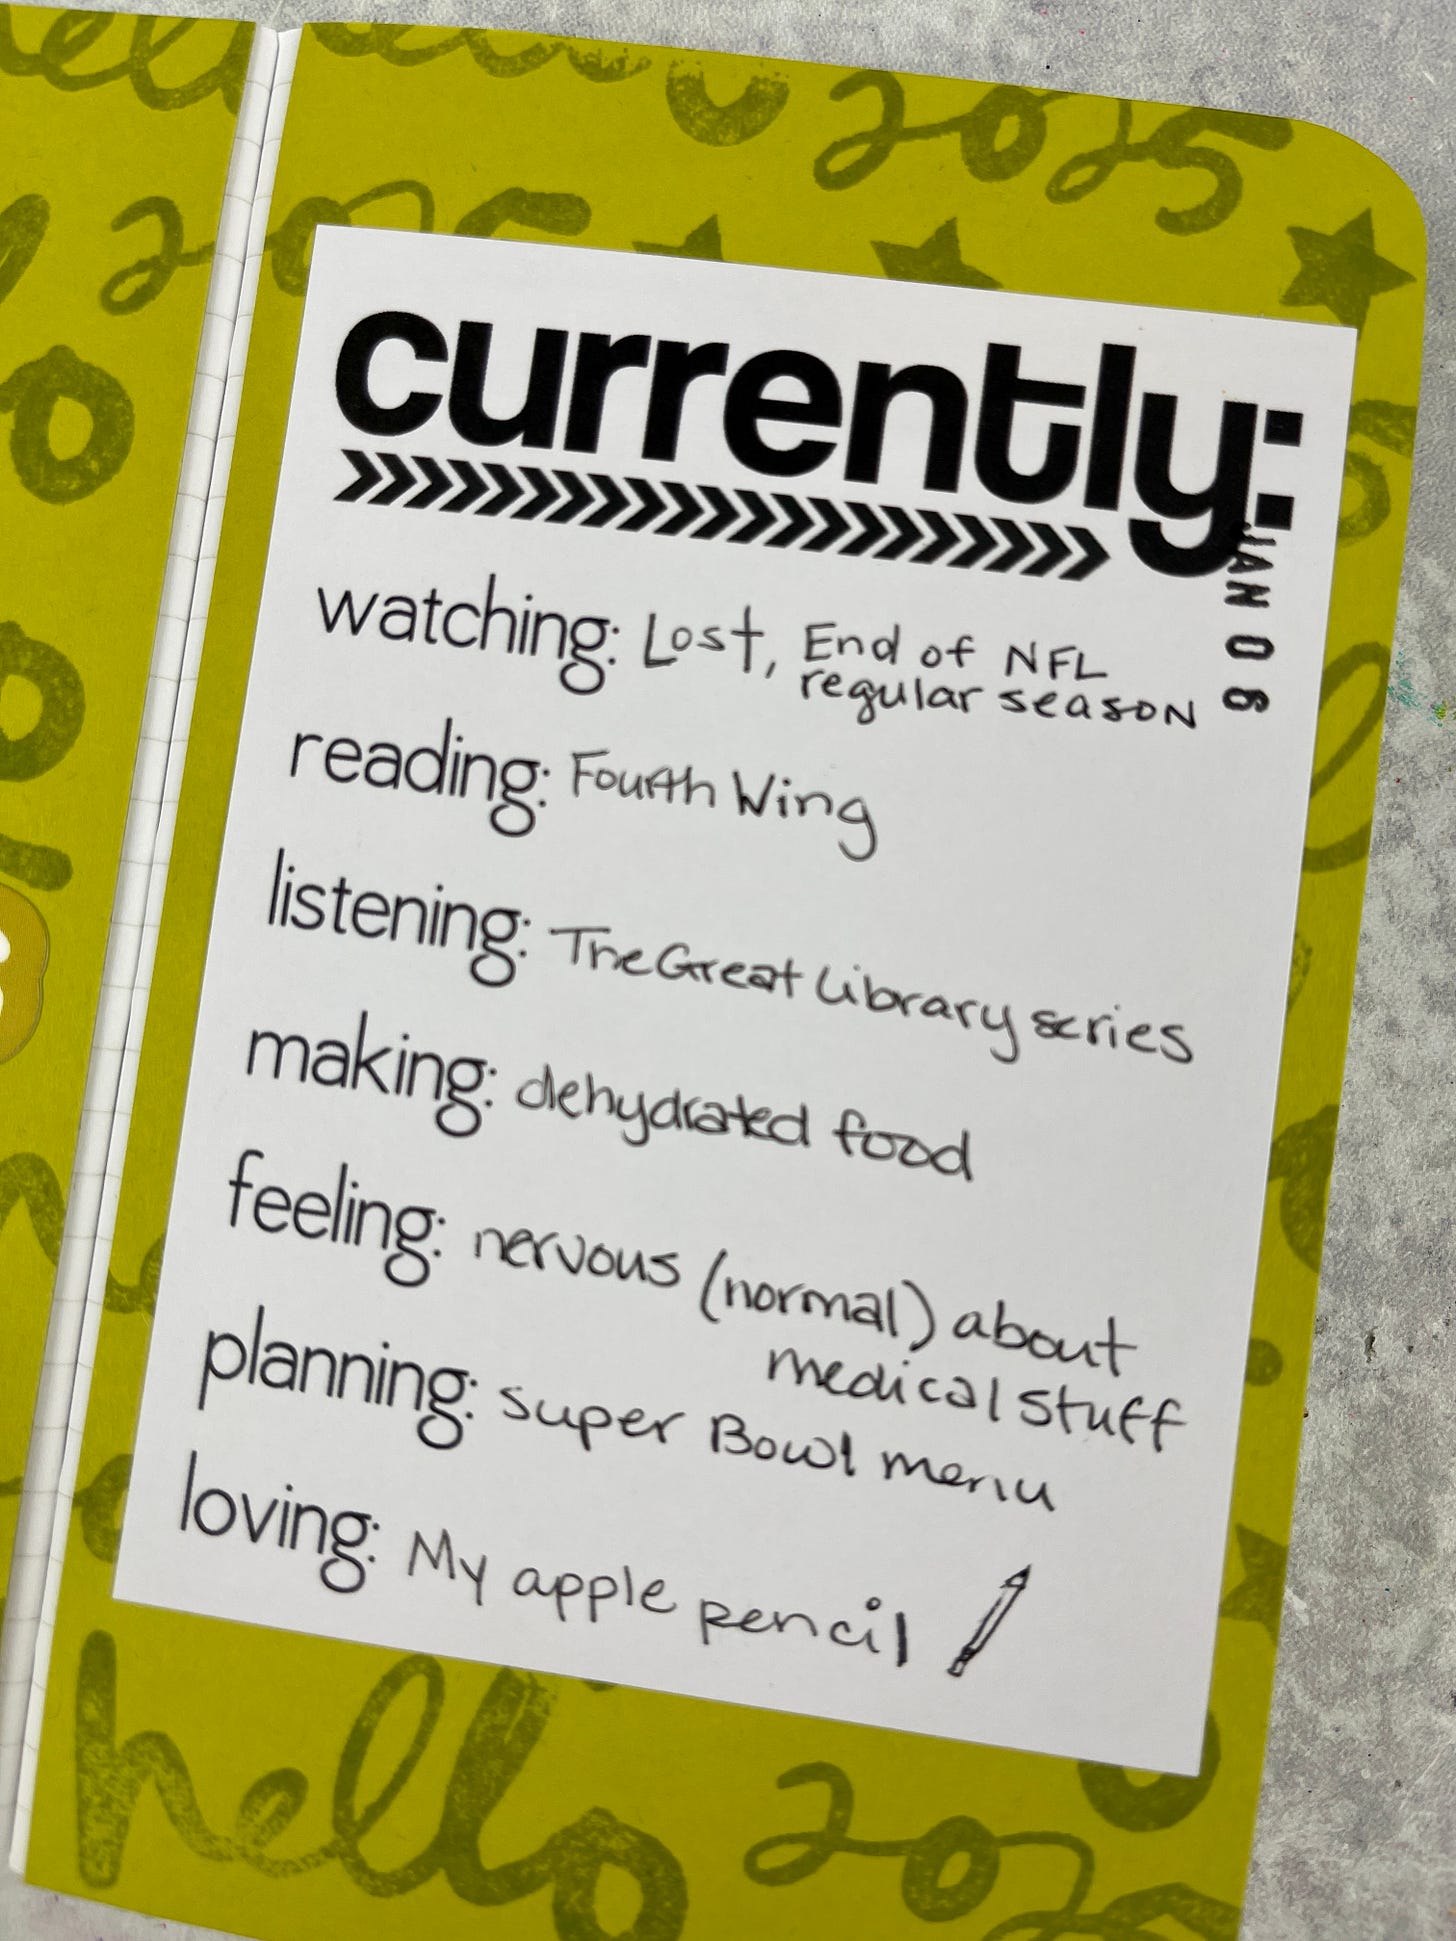 hello 2025
2025
currently:
JAN 06
watching: Lost, End of NFL
regular season
reading: Fourth Wing
listening: The Great Library series
making: dehydrated food
feeling: nervous (normal) about
medical stuff
planning: super Bowl menu
loving: My apple pencil
hello 2025